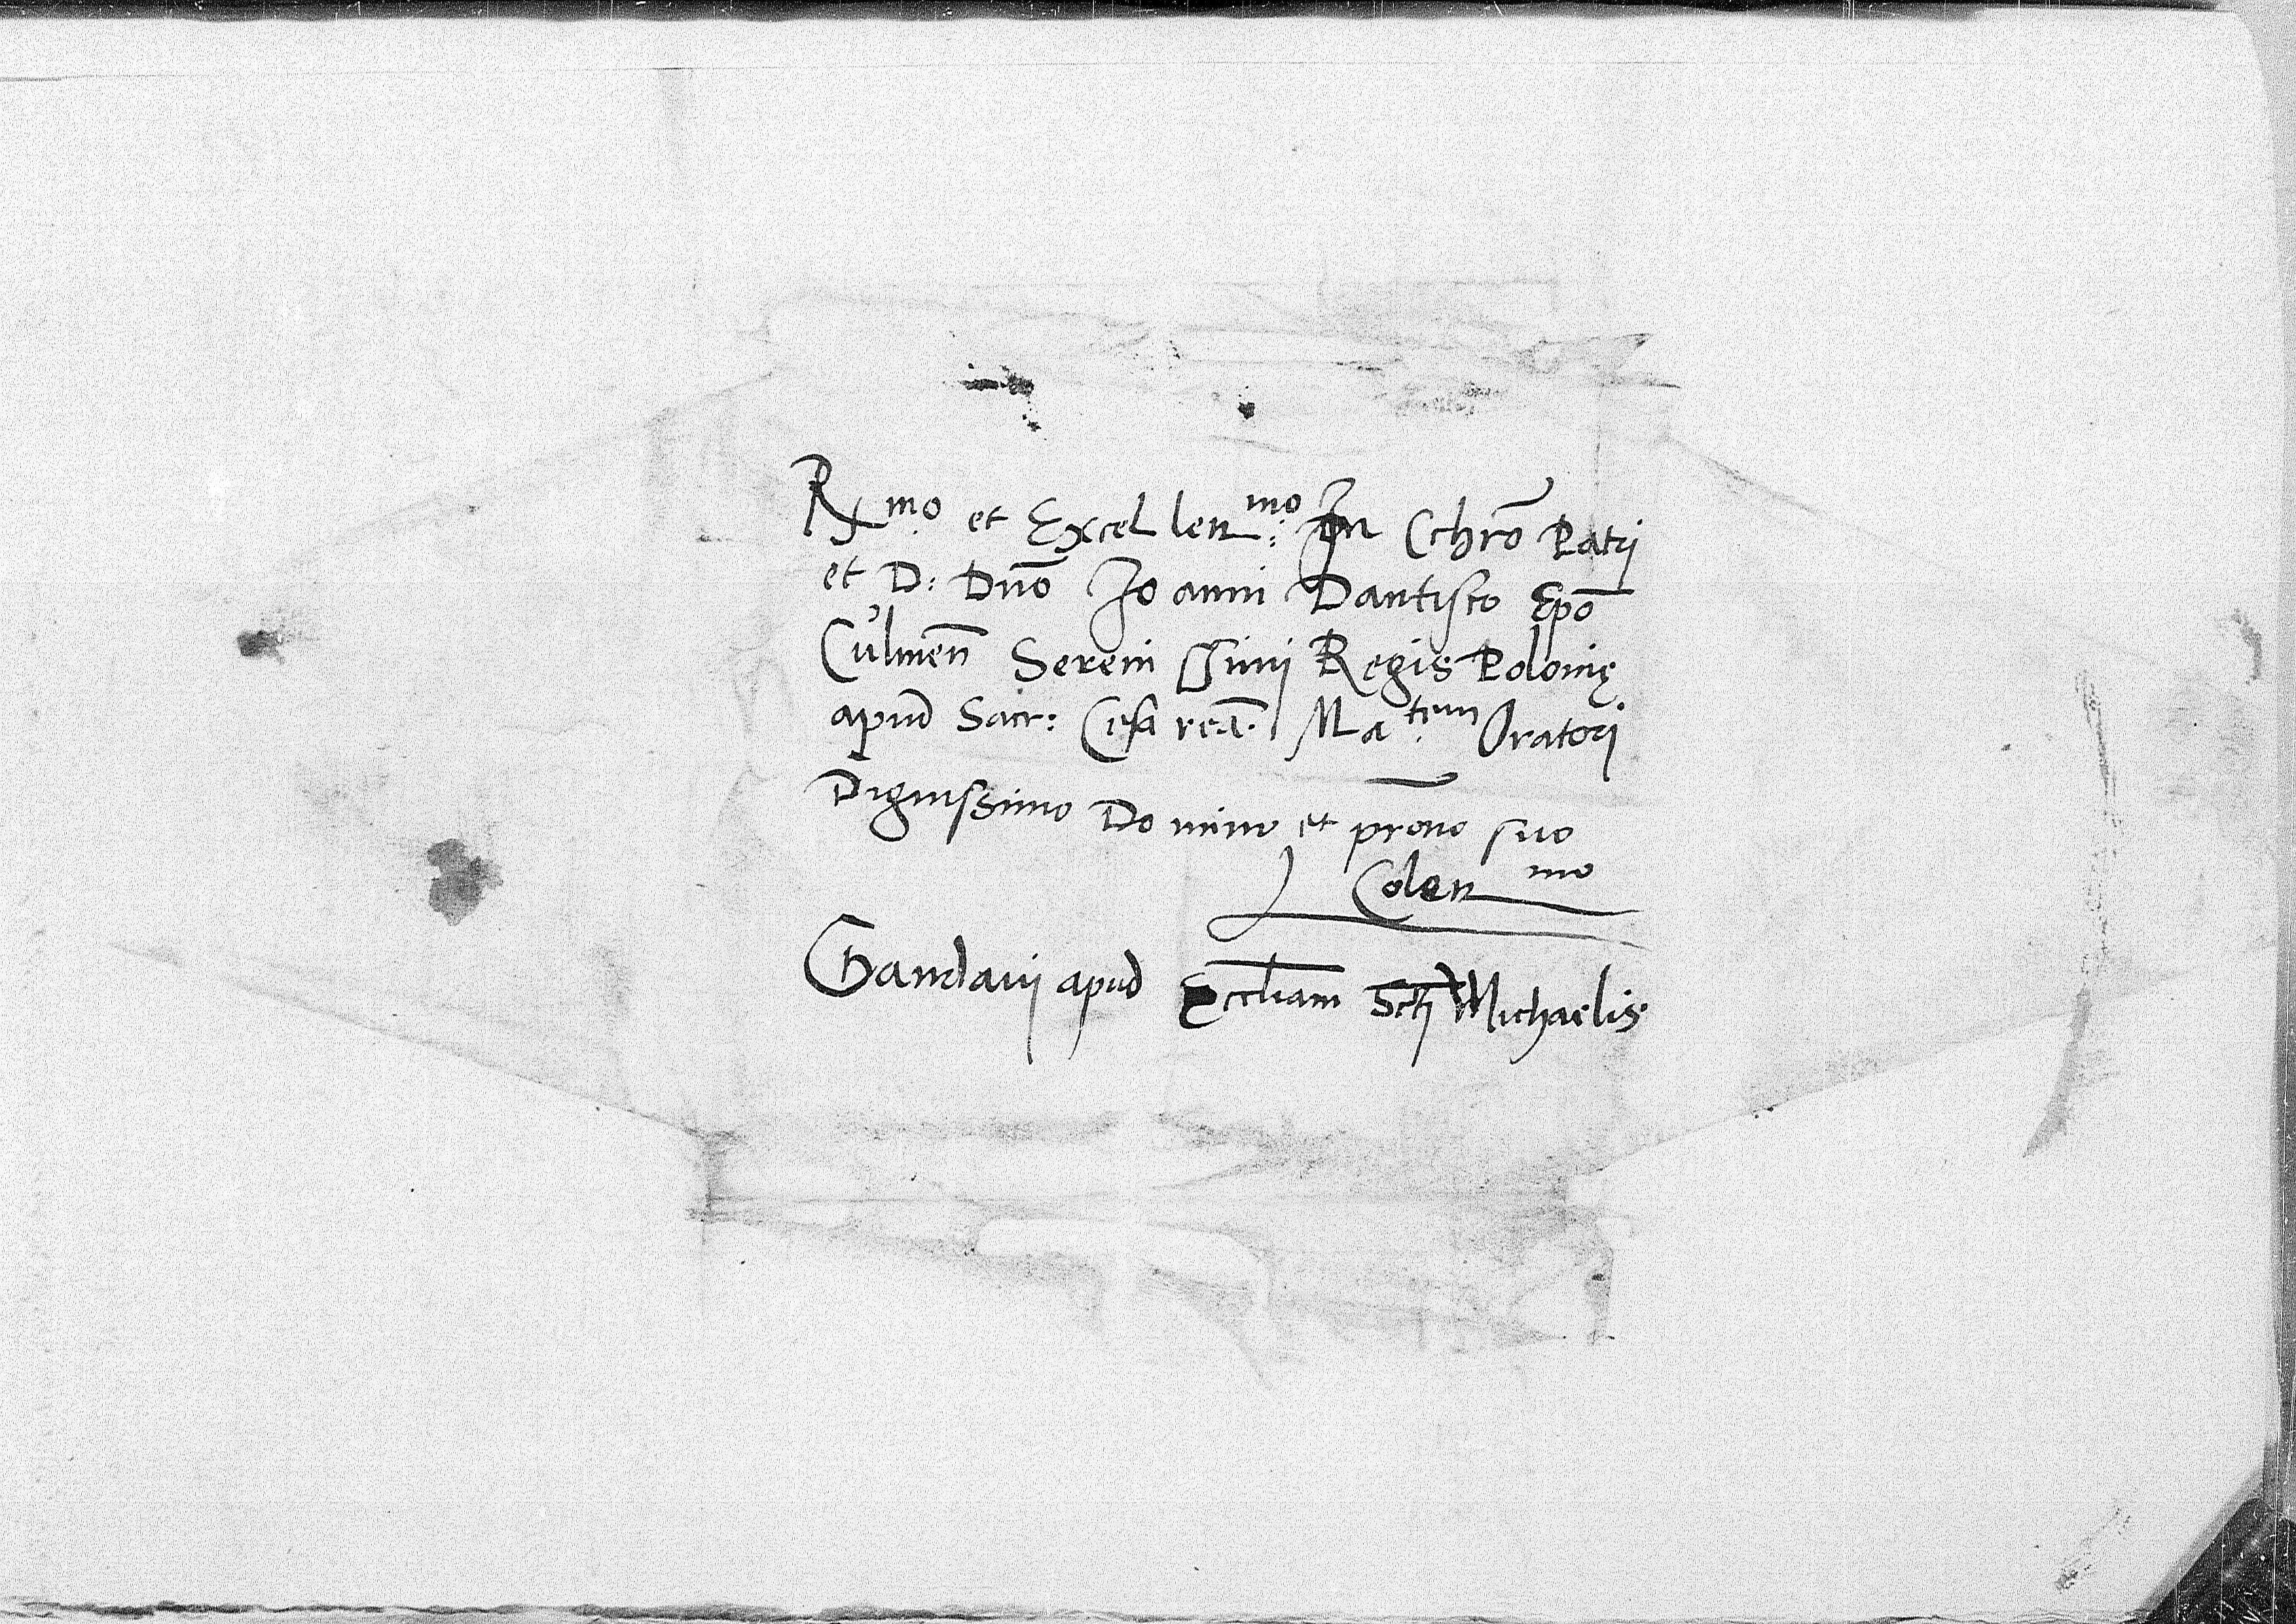 R.mo et Excellen.mo In Cchr̄o Patri
et D: Dn̄o Joanni Dantisco Ep̄o
Culmen̄ Serenissimi Regis Polonię
apud Sacr: Cesareā. Ma.tem Oratori
Dignissimo Domino et pr̄ono suo
Colen mo
Gandavij apud Eccl̄iam Sc̄ti Michaelis.